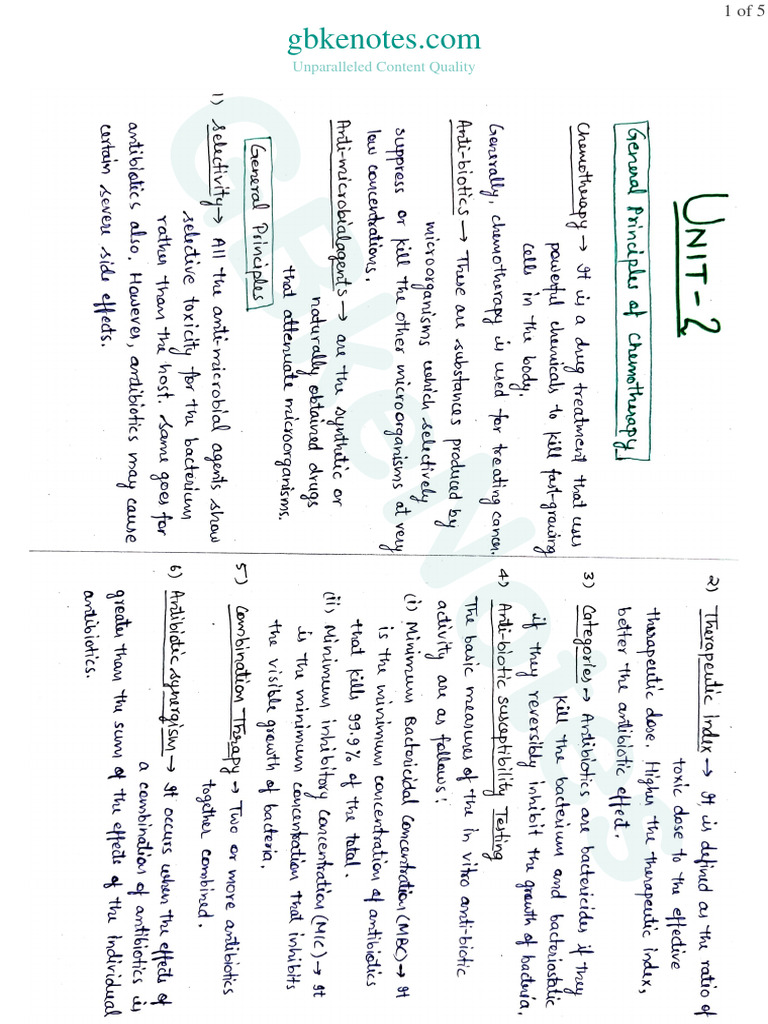 1 of 5
gbkenotes.com
Unparalleled Content Quality
GBKeNotes
UNIT-2
General Principles of Chemotherapy
Chemotherapy → It is a drug treatment that uses
powerful chemicals to kill fast-growing
cells in the body.
Generally, chemotherapy is used for treating cancer.
Anti-biotics → These are substances produced by
microorganisms which selectively
suppress or kill the other microorganisms at very
low concentrations.
Anti-microbial agents → are the synthetic or
naturally obtained drugs
that attenuate microorganisms.
General Principles
1) Selectivity → All the anti-microbial agents show
selective toxicity for the bacterium
rather than the host. Same goes for
antibiotics also. However, antibiotics may cause
certain severe side effects.
2) Therapeutic Index → It, is defined as the ratio of
toxic dose to the effective
therapeutic dose. Higher the therapeutic index,
better the antibiotic effect.
3) Categories → Antibiotics are bactericides if they
kill the bacterium and bacteriostatic
if they reversibly inhibit the growth of bacteria.
4) Anti-biotic susceptibility Testing
The basic measures of the in vitro anti-biotic
activity are as follows:
(i) Minimum Bactericidal Concentration (MBC) → It
is the minimum concentration of antibiotics
that kills 99.9% of the total.
(ii) Minimum inhibitory concentration (MIC) → It
is the minimum concentration that inhibits
the visible growth of bacteria.
5) Combination Therapy → Two or more antibiotics
together combined.
6) Antibiotic synergism → It occurs when the effects of
a combination of antibiotics is
greater than the sum of the effects of the individual
antibiotics.